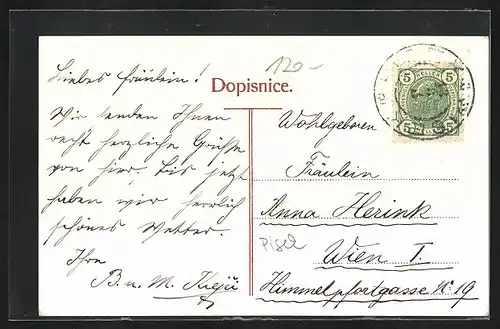 120-
Dopisnice.
Liebes Fräulein!
Wir senden Ihnen
recht herzliche Grüsse
von hier, bis jetzt
haben wir herrlich
schönes Wetter.
Ihre
B. u. M.
5 5
Wohlgeboren
Fräulein
Anna Herink
Wien I.
Himmelpfortgasse No 19
Pisel